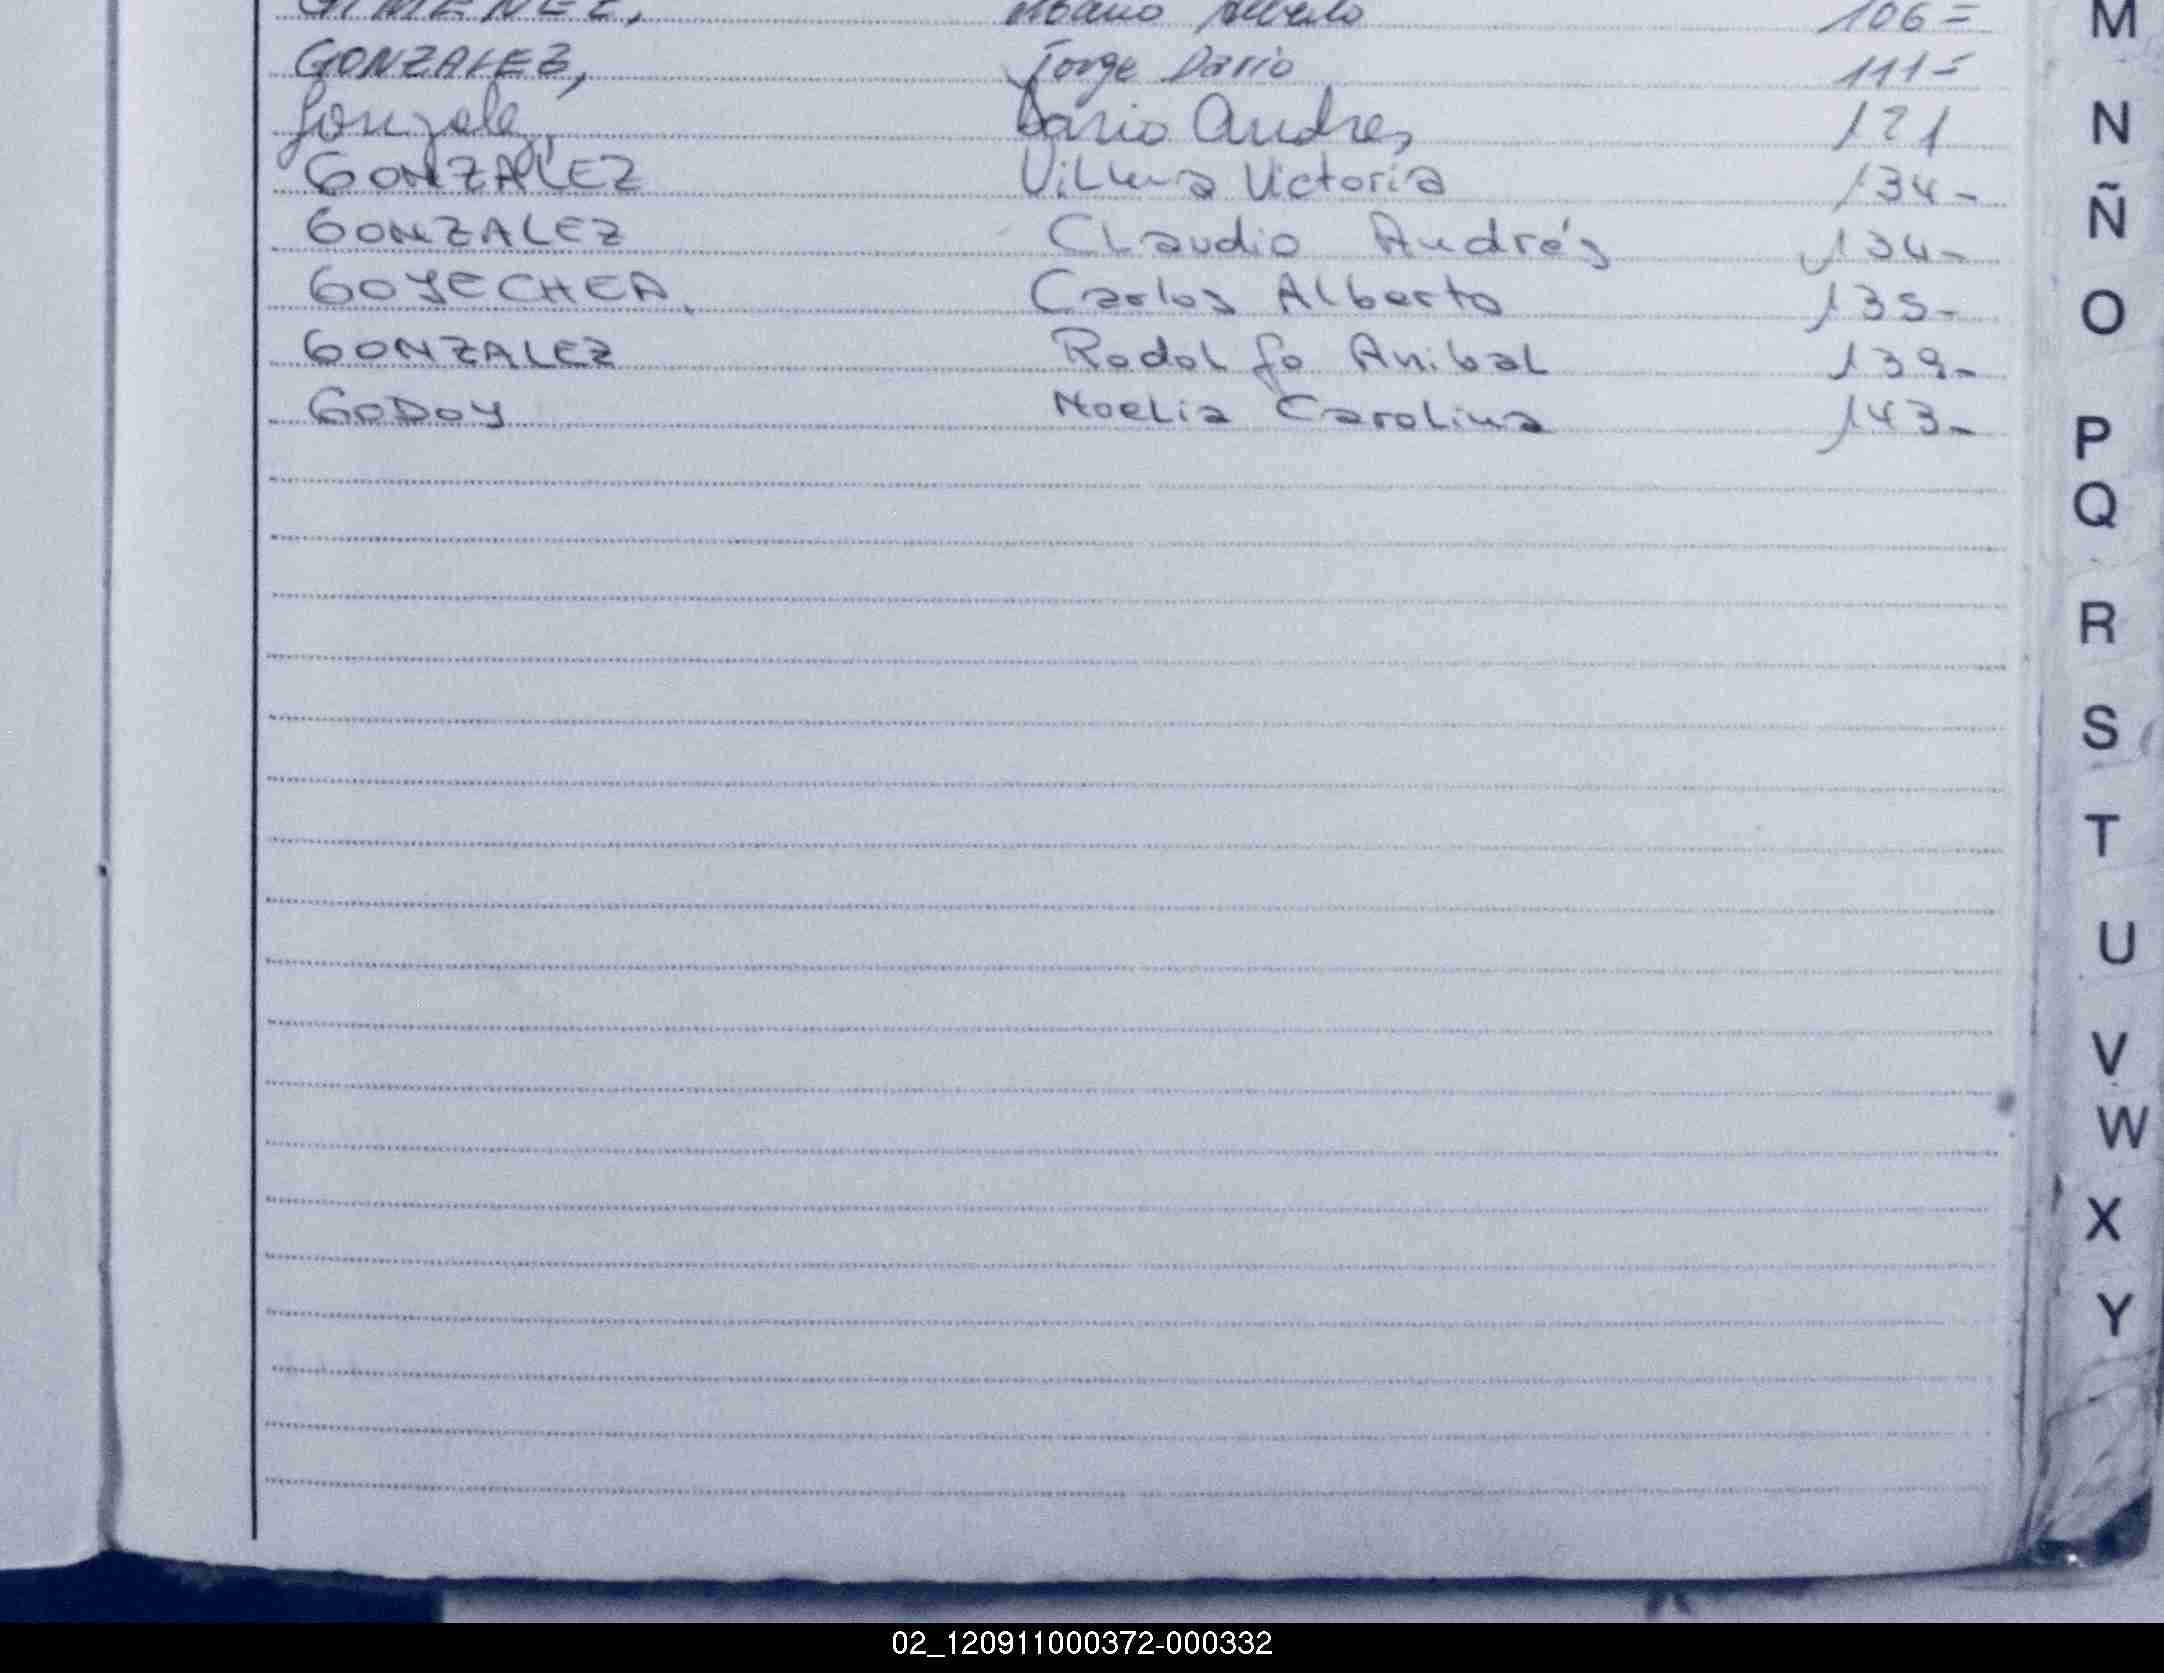 GIMENEZ, Alberto 106=
GONZALEZ, Jorge Dario 111=
Gonzalez, Dario Andres 121
GONZALEZ Vilma Victoria 134-
GONZALEZ Claudio Andrés 134-
GOYECHEA, Carlos Alberto 135-
GONZALEZ Rodolfo Anibal 139-
GODOY Noelia Carolina 143-
M
N
Ñ
O
P
Q
R
S
T
U
V
W
X
Y
02_120911000372-000332